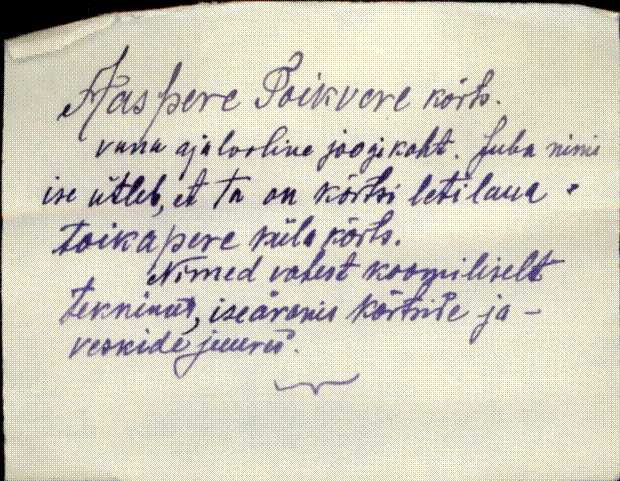 Haspere Toikvere kõrts.
vana ajalooline joogikoht. Juba nimi
ise ütleb, et ta on kõrtsi letilaua -
toikapere küla kõrts.
Nimed vahest koomiliselt
tekninud, iseäranis kõrtside ja -
veskide juures.